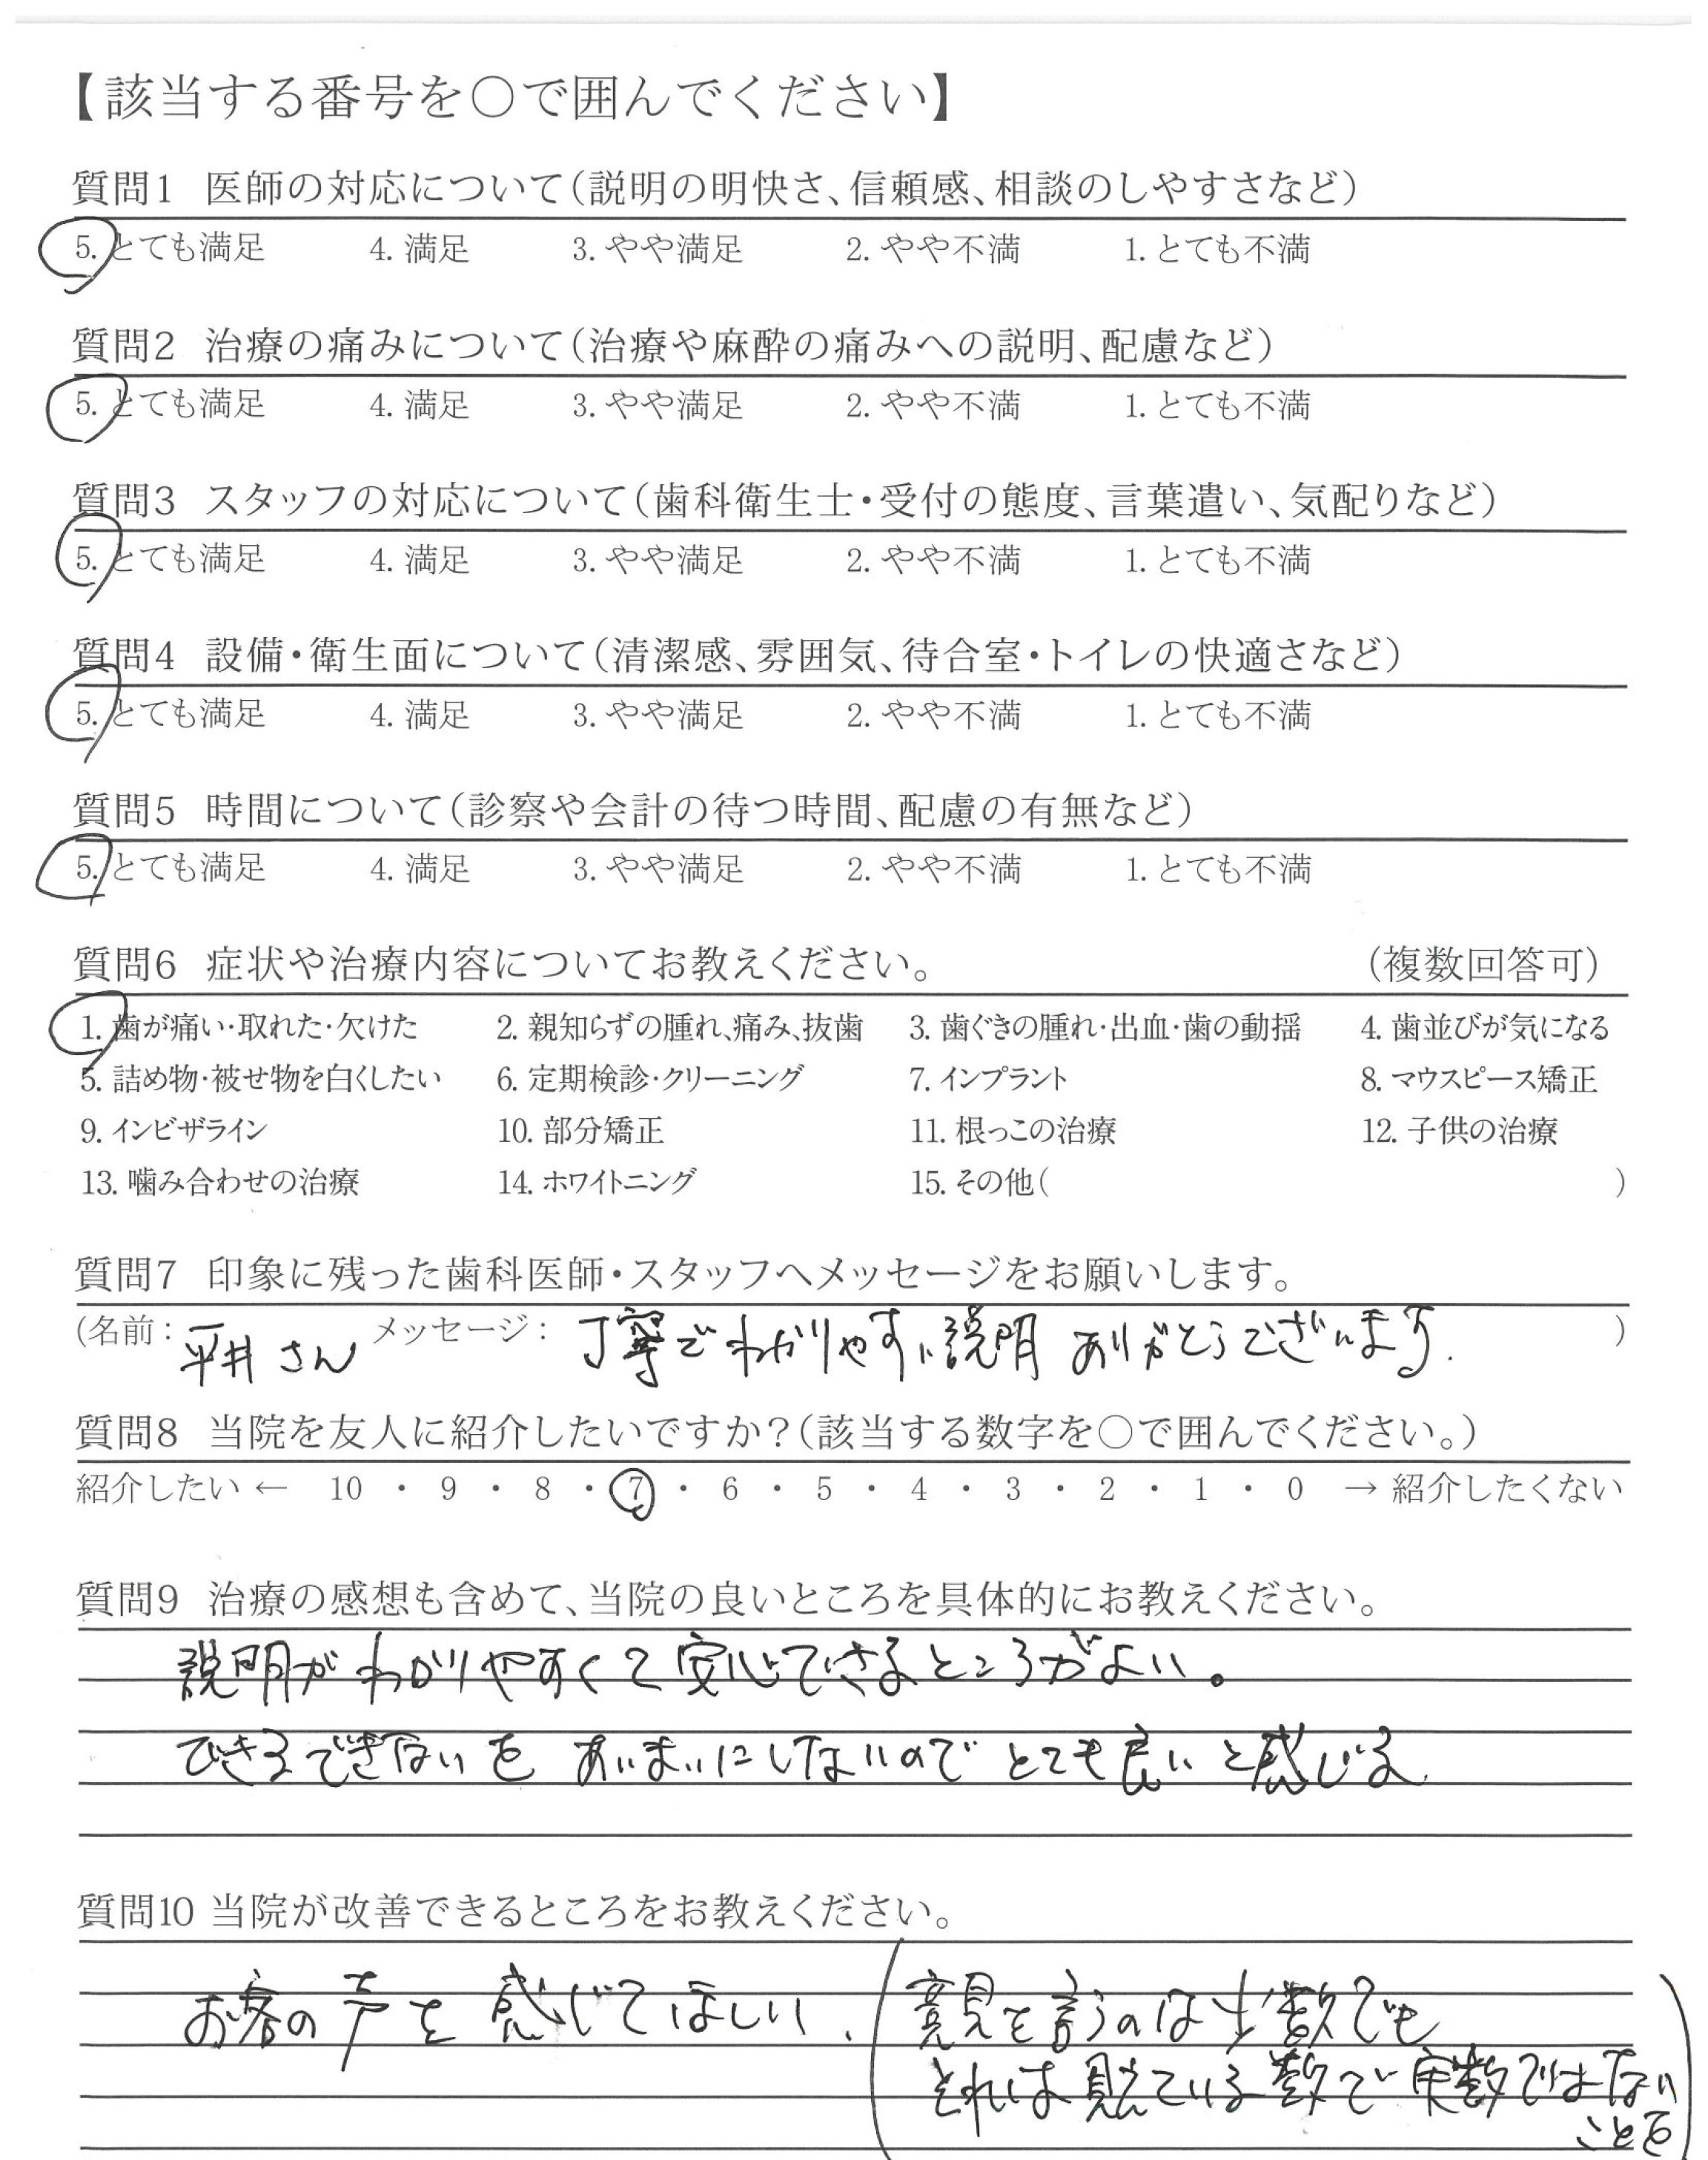 【該当する番号を○で囲んでください】
質問1 医師の対応について(説明の明快さ、信頼感、相談のしやすさなど)
5. とても満足 4. 満足 3. やや満足 2. やや不満 1. とても不満
質問2 治療の痛みについて(治療や麻酔の痛みへの説明、配慮など)
5. とても満足 4. 満足 3. やや満足 2. やや不満 1. とても不満
質問3 スタッフの対応について(歯科衛生士・受付の態度、言葉遣い、気配りなど)
5. とても満足 4. 満足 3. やや満足 2. やや不満 1. とても不満
質問4 設備・衛生面について(清潔感、雰囲気、待合室・トイレの快適さなど)
5. とても満足 4. 満足 3. やや満足 2. やや不満 1. とても不満
質問5 時間について(診察や会計の待つ時間、配慮の有無など)
5. とても満足 4. 満足 3. やや満足 2. やや不満 1. とても不満
質問6 症状や治療内容についてお教えください。 (複数回答可)
1. 歯が痛い・取れた・欠けた 2. 親知らずの腫れ、痛み、抜歯 3. 歯ぐきの腫れ・出血・歯の動揺 4. 歯並びが気になる
5. 詰め物・被せ物を白くしたい 6. 定期検診・クリーニング 7. インプラント 8. マウスピース矯正
9. インビザライン 10. 部分矯正 11. 根っこの治療 12. 子供の治療
13. 噛み合わせの治療 14. ホワイトニング 15. その他( )
質問7 印象に残った歯科医師・スタッフへメッセージをお願いします。
(名前: 平井さん メッセージ: 丁寧でわかりやすい説明 ありがとうございます. )
質問8 当院を友人に紹介したいですか?(該当する数字を○で囲んでください。)
紹介したい ← 10 ・ 9 ・ 8 ・ 7 ・ 6 ・ 5 ・ 4 ・ 3 ・ 2 ・ 1 ・ 0 → 紹介したくない
質問9 治療の感想も含めて、当院の良いところを具体的にお教えください。
説明がわかりやすくて安心できるところがよい。
できるできないを あいまいにしないので とても良いと感じる
質問10 当院が改善できるところをお教えください。
お客の声を感じてほしい. (意見を言うのは少数でも
それは見えている数で実数ではない
ことを)